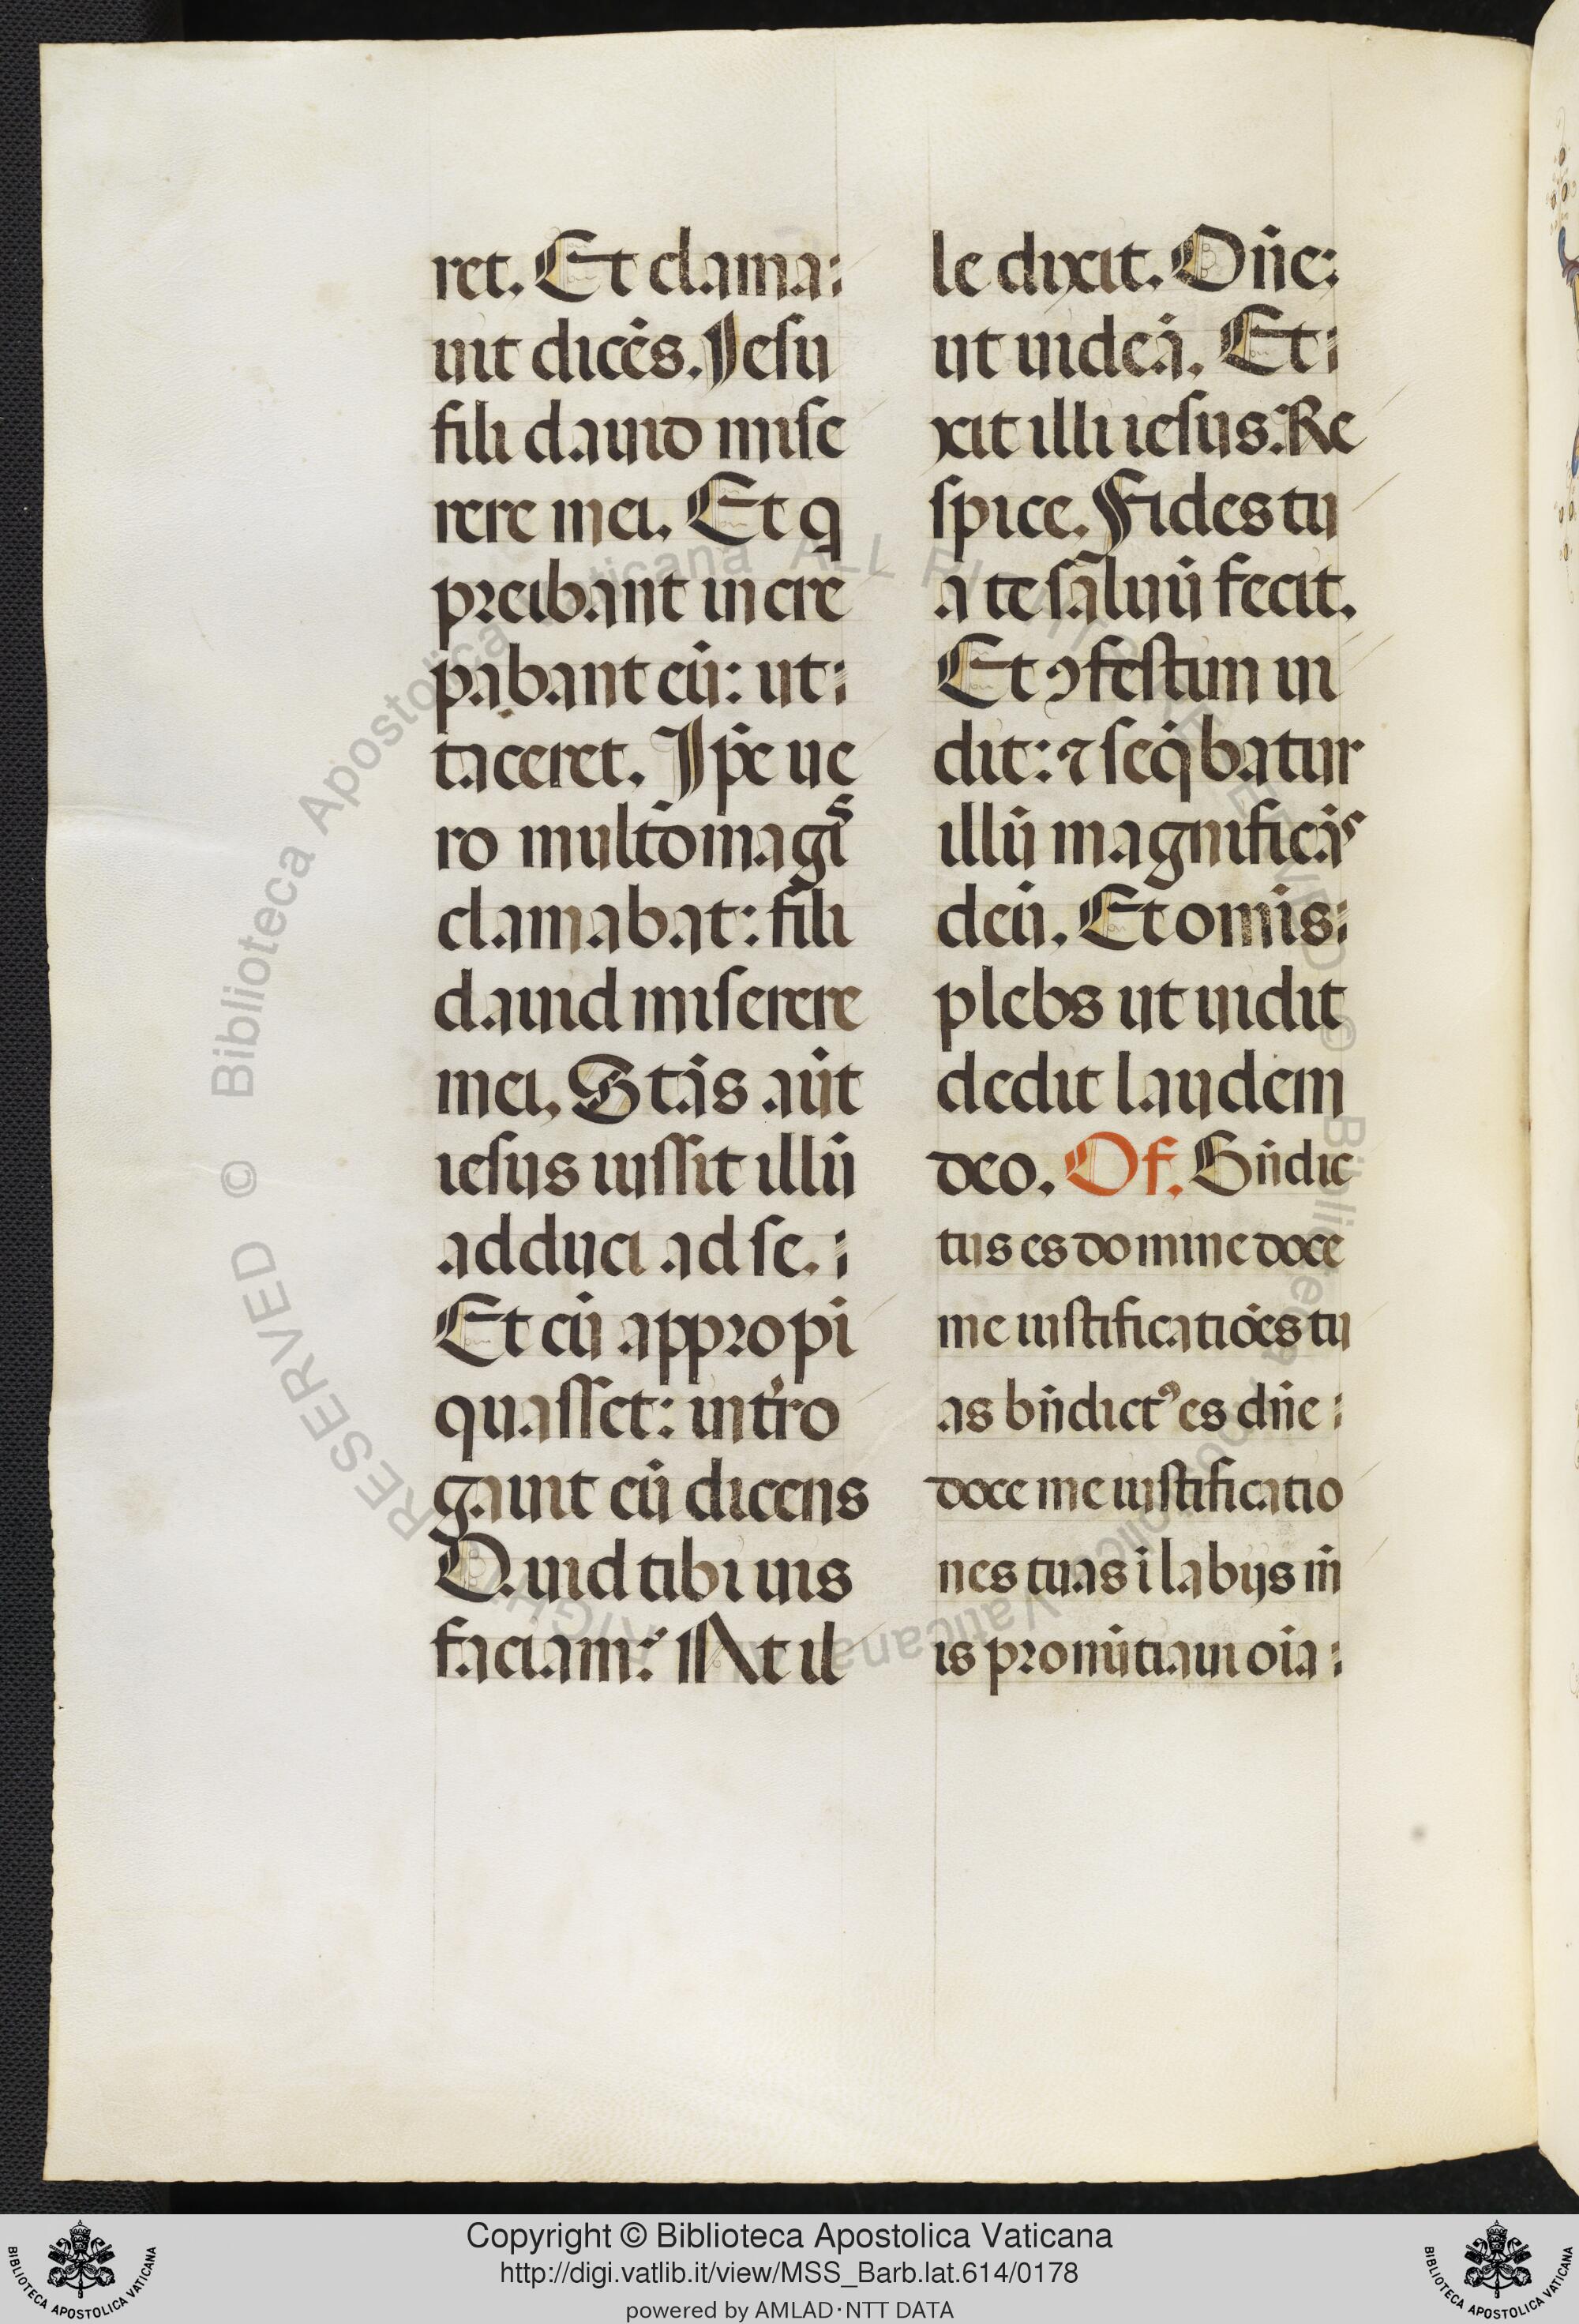 ret. Et clama:
uit dicēs. Iesu
fili dauid mise
rere mei. Et q
preibant incre
pabant eū: ut:
taceret. Ipē ue
ro multo magis
clamabat: fili
dauid miserere
mei. Stās aūt
iesus iussit illū
adduci ad se. :
Et cū appropī
quasset: int̄ro
gauit eū dicens
Quid tibi uis
faciam? At il
le dixit. Dn̄e:
ut uideā. Et:
xit illi iesus: Re
spice. Fides tu
a te saluū fecit.
Et ꝯfestim ui
dit: ⁊ seq̄batur
illū magnificās
deū. Et om̄is:
plebs ut uidit
dedit laudem
deo. Of. Bn̄dic
tus es domine doce
me iustificatiōes tu
as bn̄dictꝰ es dn̄e :
doce me iustificatio
nes tuas ī labijs m̄
is pronūtiaui oīa :
© Biblioteca Apostolica Vaticana ALL RIGHTS RESERVED © Biblioteca Apostolica Vaticana ALL RIGHTS RESERVED
Copyright © Biblioteca Apostolica Vaticana
http://digi.vatlib.it/view/MSS_Barb.lat.614/0178
powered by AMLAD·NTT DATA
BIBLIOTECA APOSTOLICA VATICANA
BIBLIOTECA APOSTOLICA VATICANA